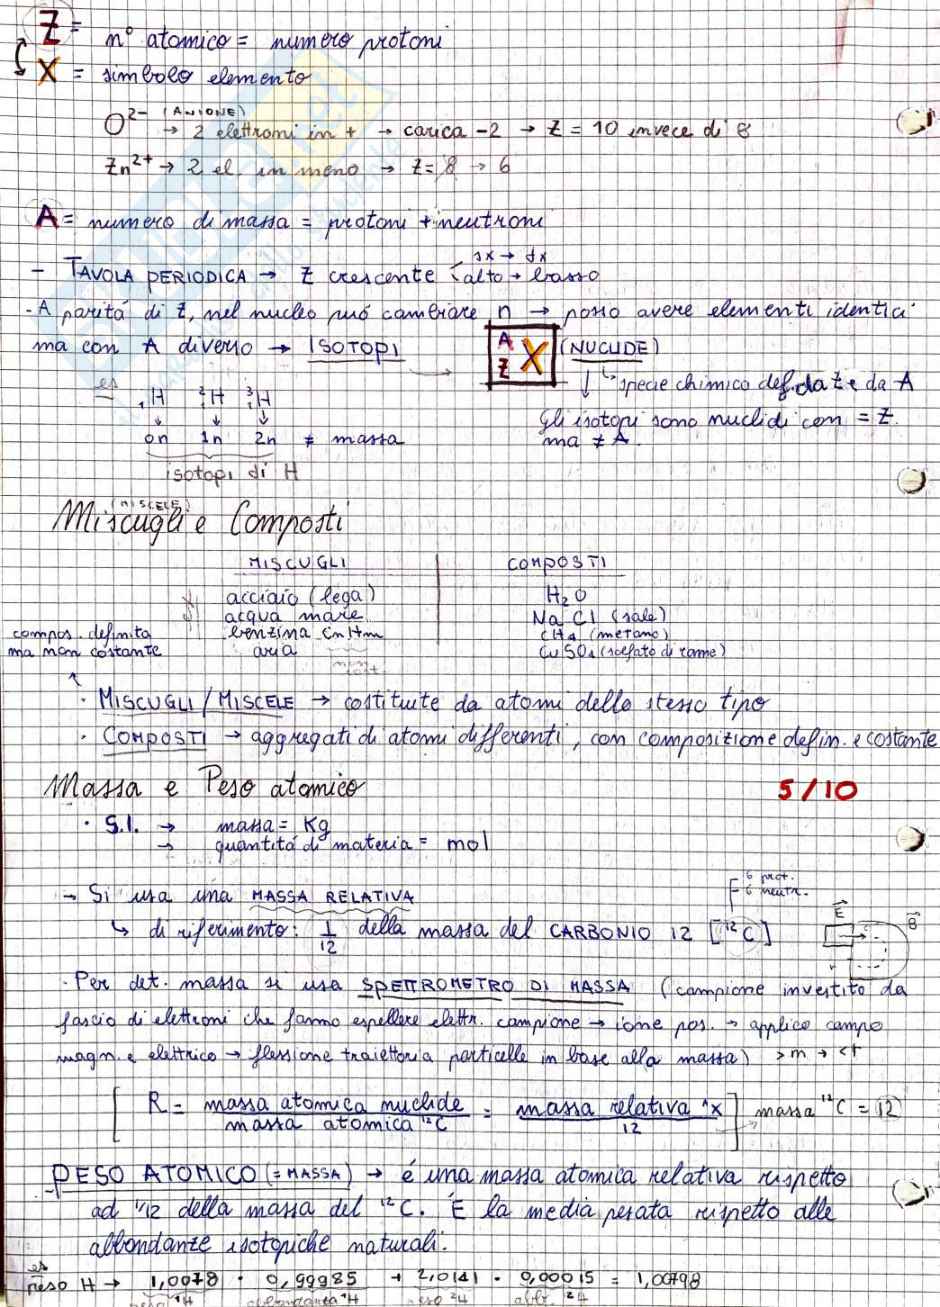 Z = n° atomico = numero protoni
X = simbolo elemento
O²⁻ (ANIONE) → 2 elettroni in + → carica -2 → Z = 10 invece di 8
Zn²⁺ → 2 el. in meno → Z = 8 → 6
A = numero di massa = protoni + neutroni
- TAVOLA PERIODICA → Z crescente sx → dx alto → basso
- A parità di Z, nel nucleo può cambiare n → posso avere elementi identici
ma con A diverso → ISOTOPI A Z X (NUCLIDE)
↳ specie chimico def. da Z e da A
es ₁H ²₁H ³₁H
Gli isotopi sono nuclidi con = Z
ma ≠ A.
0n 1n 2n ≠ massa
isotopi di H
Miscugli (MISCELE) e Composti
MISCUGLI COMPOSTI
acciaio (lega) H₂O
acqua mare NaCl (sale)
benzina CnHm CH₄ (metano)
aria CuSO₄ (solfato di rame)
compos. definita
ma non costante
non cost
· MISCUGLI / MISCELE → costituite da atomi dello stesso tipo
· COMPOSTI → aggregati di atomi differenti, con composizione defin. e costante
Massa e Peso atomico 5/10
· S.I. → massa = Kg
→ quantità di materia = mol
→ Si usa una MASSA RELATIVA
6 prot.
6 neutr.
↳ di riferimento: 1/12 della massa del CARBONIO 12 [¹²C]
E B
· Per det. massa si usa SPETTROMETRO DI MASSA (campione investito da
fascio di elettroni che fanno espellere elettr. campione → ione pos. → applico campo
magn. e elettrico → flessione traiettoria particelle in base alla massa) >m → <f
[R = massa atomica nuclide / massa atomica ¹²C = massa relativa ᴬX / 12] massa ¹²C = 12
- PESO ATOMICO (= MASSA) → é una massa atomica relativa rispetto
ad 1/12 della massa del ¹²C. É la media pesata rispetto alle
abbondanze isotopiche naturali.
es
peso H → 1,0078 · 0,99985 + 2,0141 · 0,00015 = 1,00798
peso ¹H abbondanza ¹H peso ²H abb. ²H